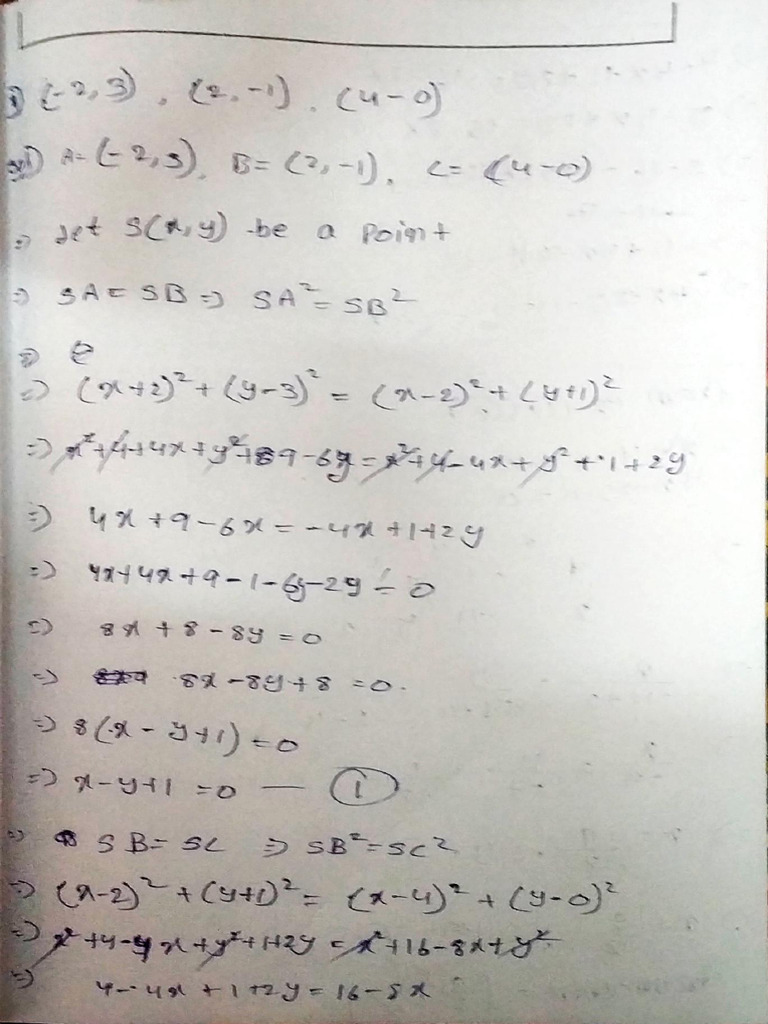 (-2, 3), (2, -1), (4-0)
A= (-2, 3), B= (2, -1), C= (4-0)
=> Let S(x, y) be a point
=> SA = SB => SA² = SB²
=> (x+2)² + (y-3)² = (x-2)² + (y+1)²
=> x²+4+4x+y²+9-6y = x²+4-4x+y²+1+2y
=> 4x+9-6x = -4x+1+2y
=> 4x+4x+9-1-6y-2y = 0
=> 8x+8-8y = 0
=> 8x-8y+8 = 0.
=> 8(x-y+1) = 0
=> x-y+1 = 0 — ①
=> SB = SC => SB² = SC²
=> (x-2)² + (y+1)² = (x-4)² + (y-0)²
=> x²+4-4x+y²+1+2y = x²+16-8x+y²
=> 4-4x+1+2y = 16-8x